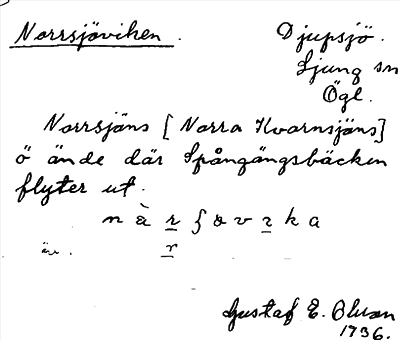 Norrsjöviken.
Djupsjö.
Ljung sn
Ögl.
Norrsjöns [Norra Kvarnsjöns]
ö ände där Spångängsbäcken
flyter ut.
Gustaf E.
1936.